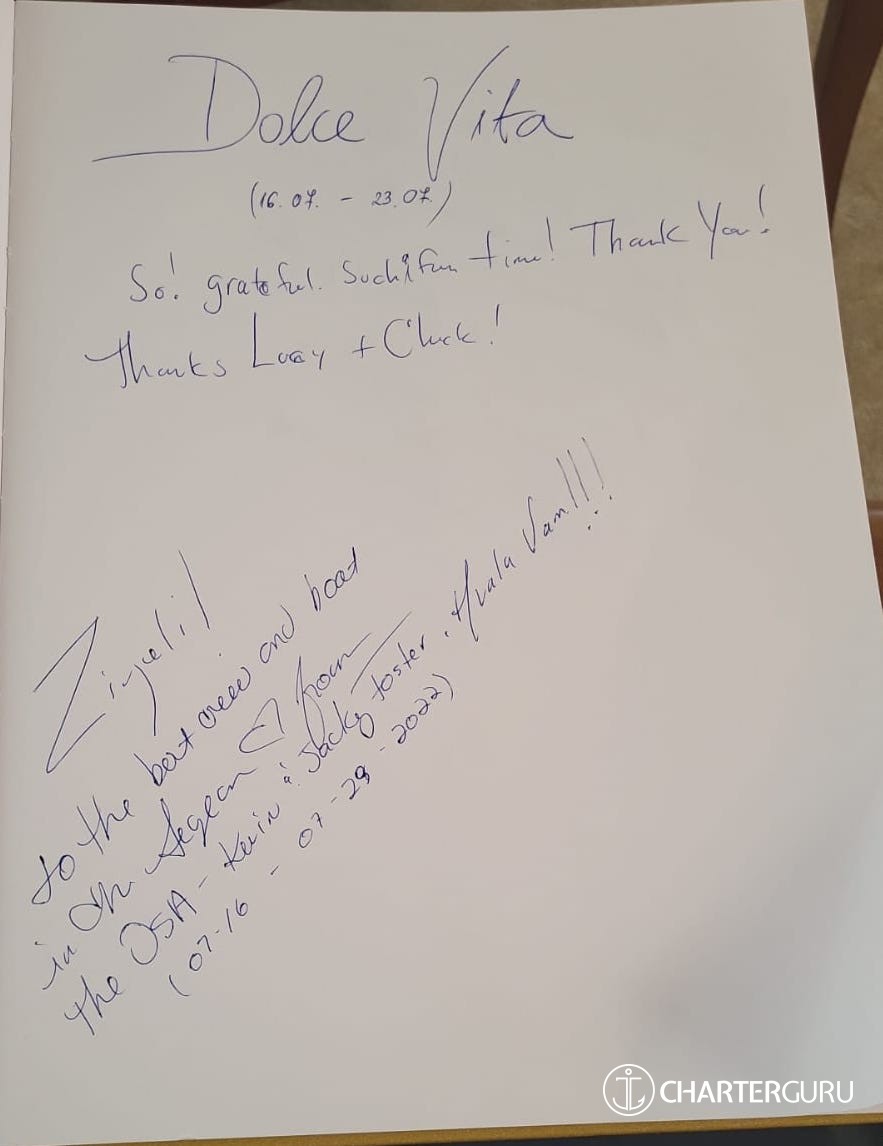 Dolce Vita
(16.07. - 23.07.)
So! grateful. Such a fun time! Thank You!
Thanks Lucy + Chuck!
Živjeli!
to the best crew and boat
in the Aegean from
the USA - Kevin & Jacky Foster. Hvala Vam!!!
(07-16 - 07-29-2022)
CHARTERGURU